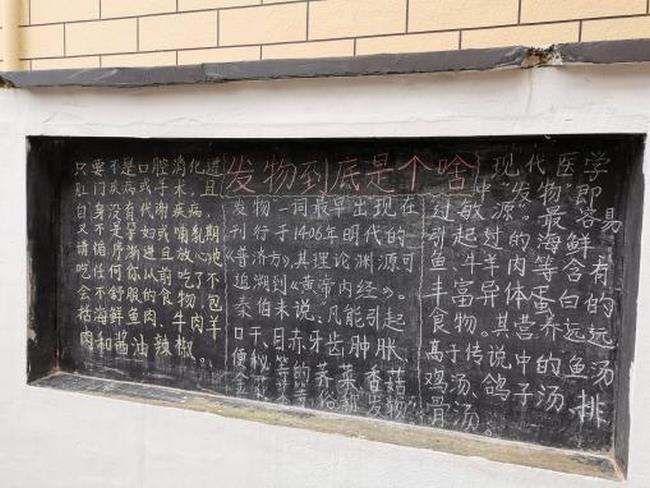 发物到底是个啥
只要不是口腔消化道
肛门疾病或手术。且
自身没有代谢疾病,
又不是孕妇或哺乳期
请循序渐进且放心地
吃任何你从前吃了不
会不舒服的食物包
括海鲜鱼肉、牛羊
肉和酱油辣椒。
发物一词最早出现在
刊行于1406年明代的
《普济方》,其理论渊源可
追溯到《黄帝内经》。
秦伯未说、凡能引起
口干、目赤、牙齿肿胀、
便秘等的芥菜、香菇
等俗称发物
现代医学
中"发物"即
过敏源。最容易
引起过敏的海鲜有
鱼、牛羊肉等含有的
丰富异体蛋白的
食物。其营养远远
高于传说中的鱼汤
鸡汤、鸽子汤、排
骨汤。